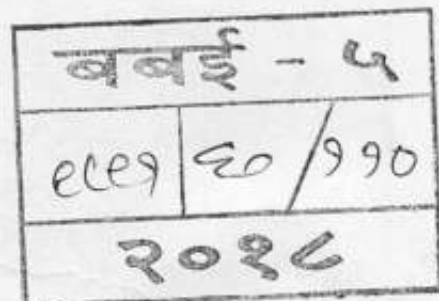 बबई - ५
९८९१ ६० / ११०
२०१८